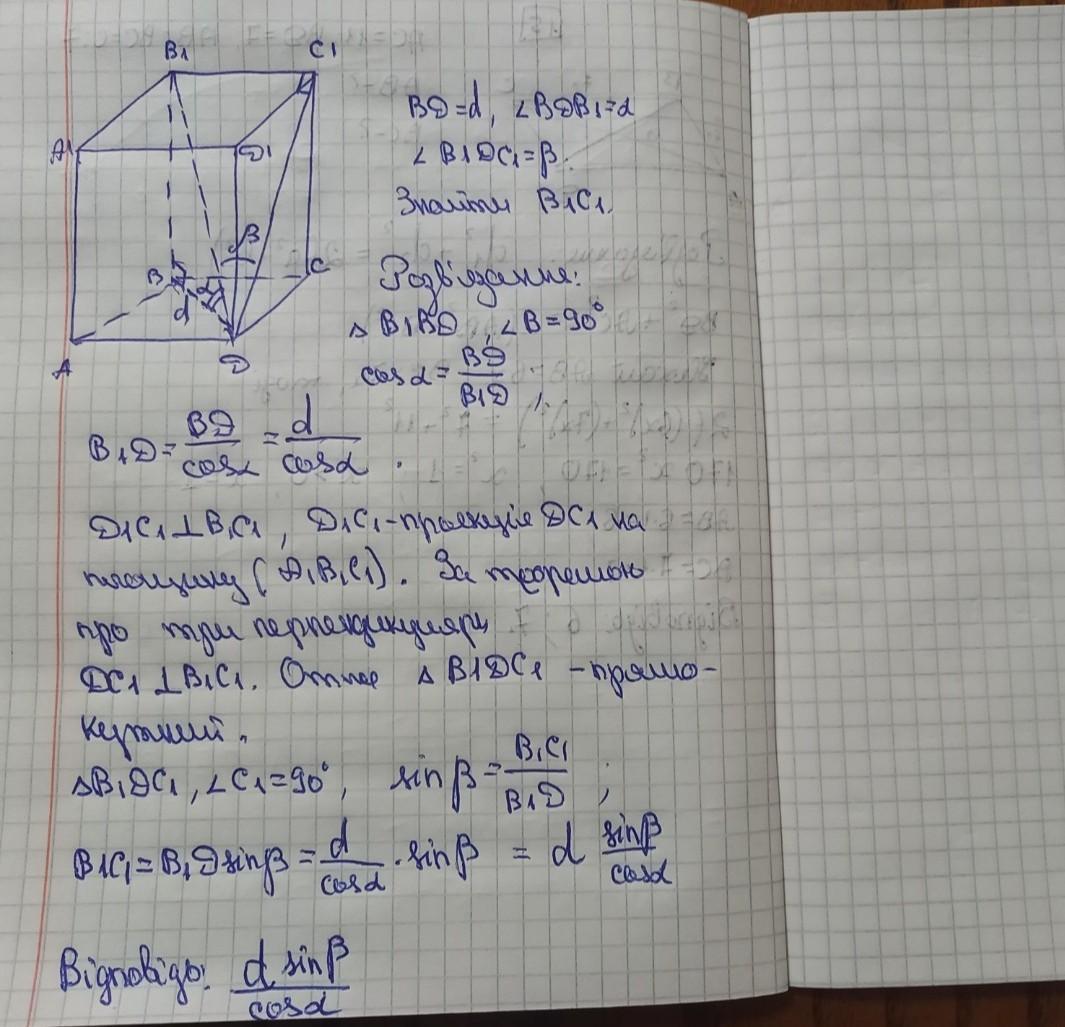 B1 C1
A1 D1
β
B C
α
d
A D
BD=d, ∠BDB1=α
∠B1DC1=β.
Знайти B1C1.
Розв'язання:
△ B1BD, ∠B=90°
cosα=BD/B1D,
B1D=BD/cosα=d/cosα.
D1C1⊥B1C1, D1C1-проекція DC1 на
площину (A1B1C1). За теоремою
про три перпендикуляри
DC1⊥B1C1. Отже △ B1DC1 -прямо-
кутний.
△B1DC1, ∠C1=90°, sinβ=B1C1/B1D;
B1C1=B1Dsinβ=d/cosα·sinβ = d sinβ/cosα
Відповідь: d sinβ/cosα